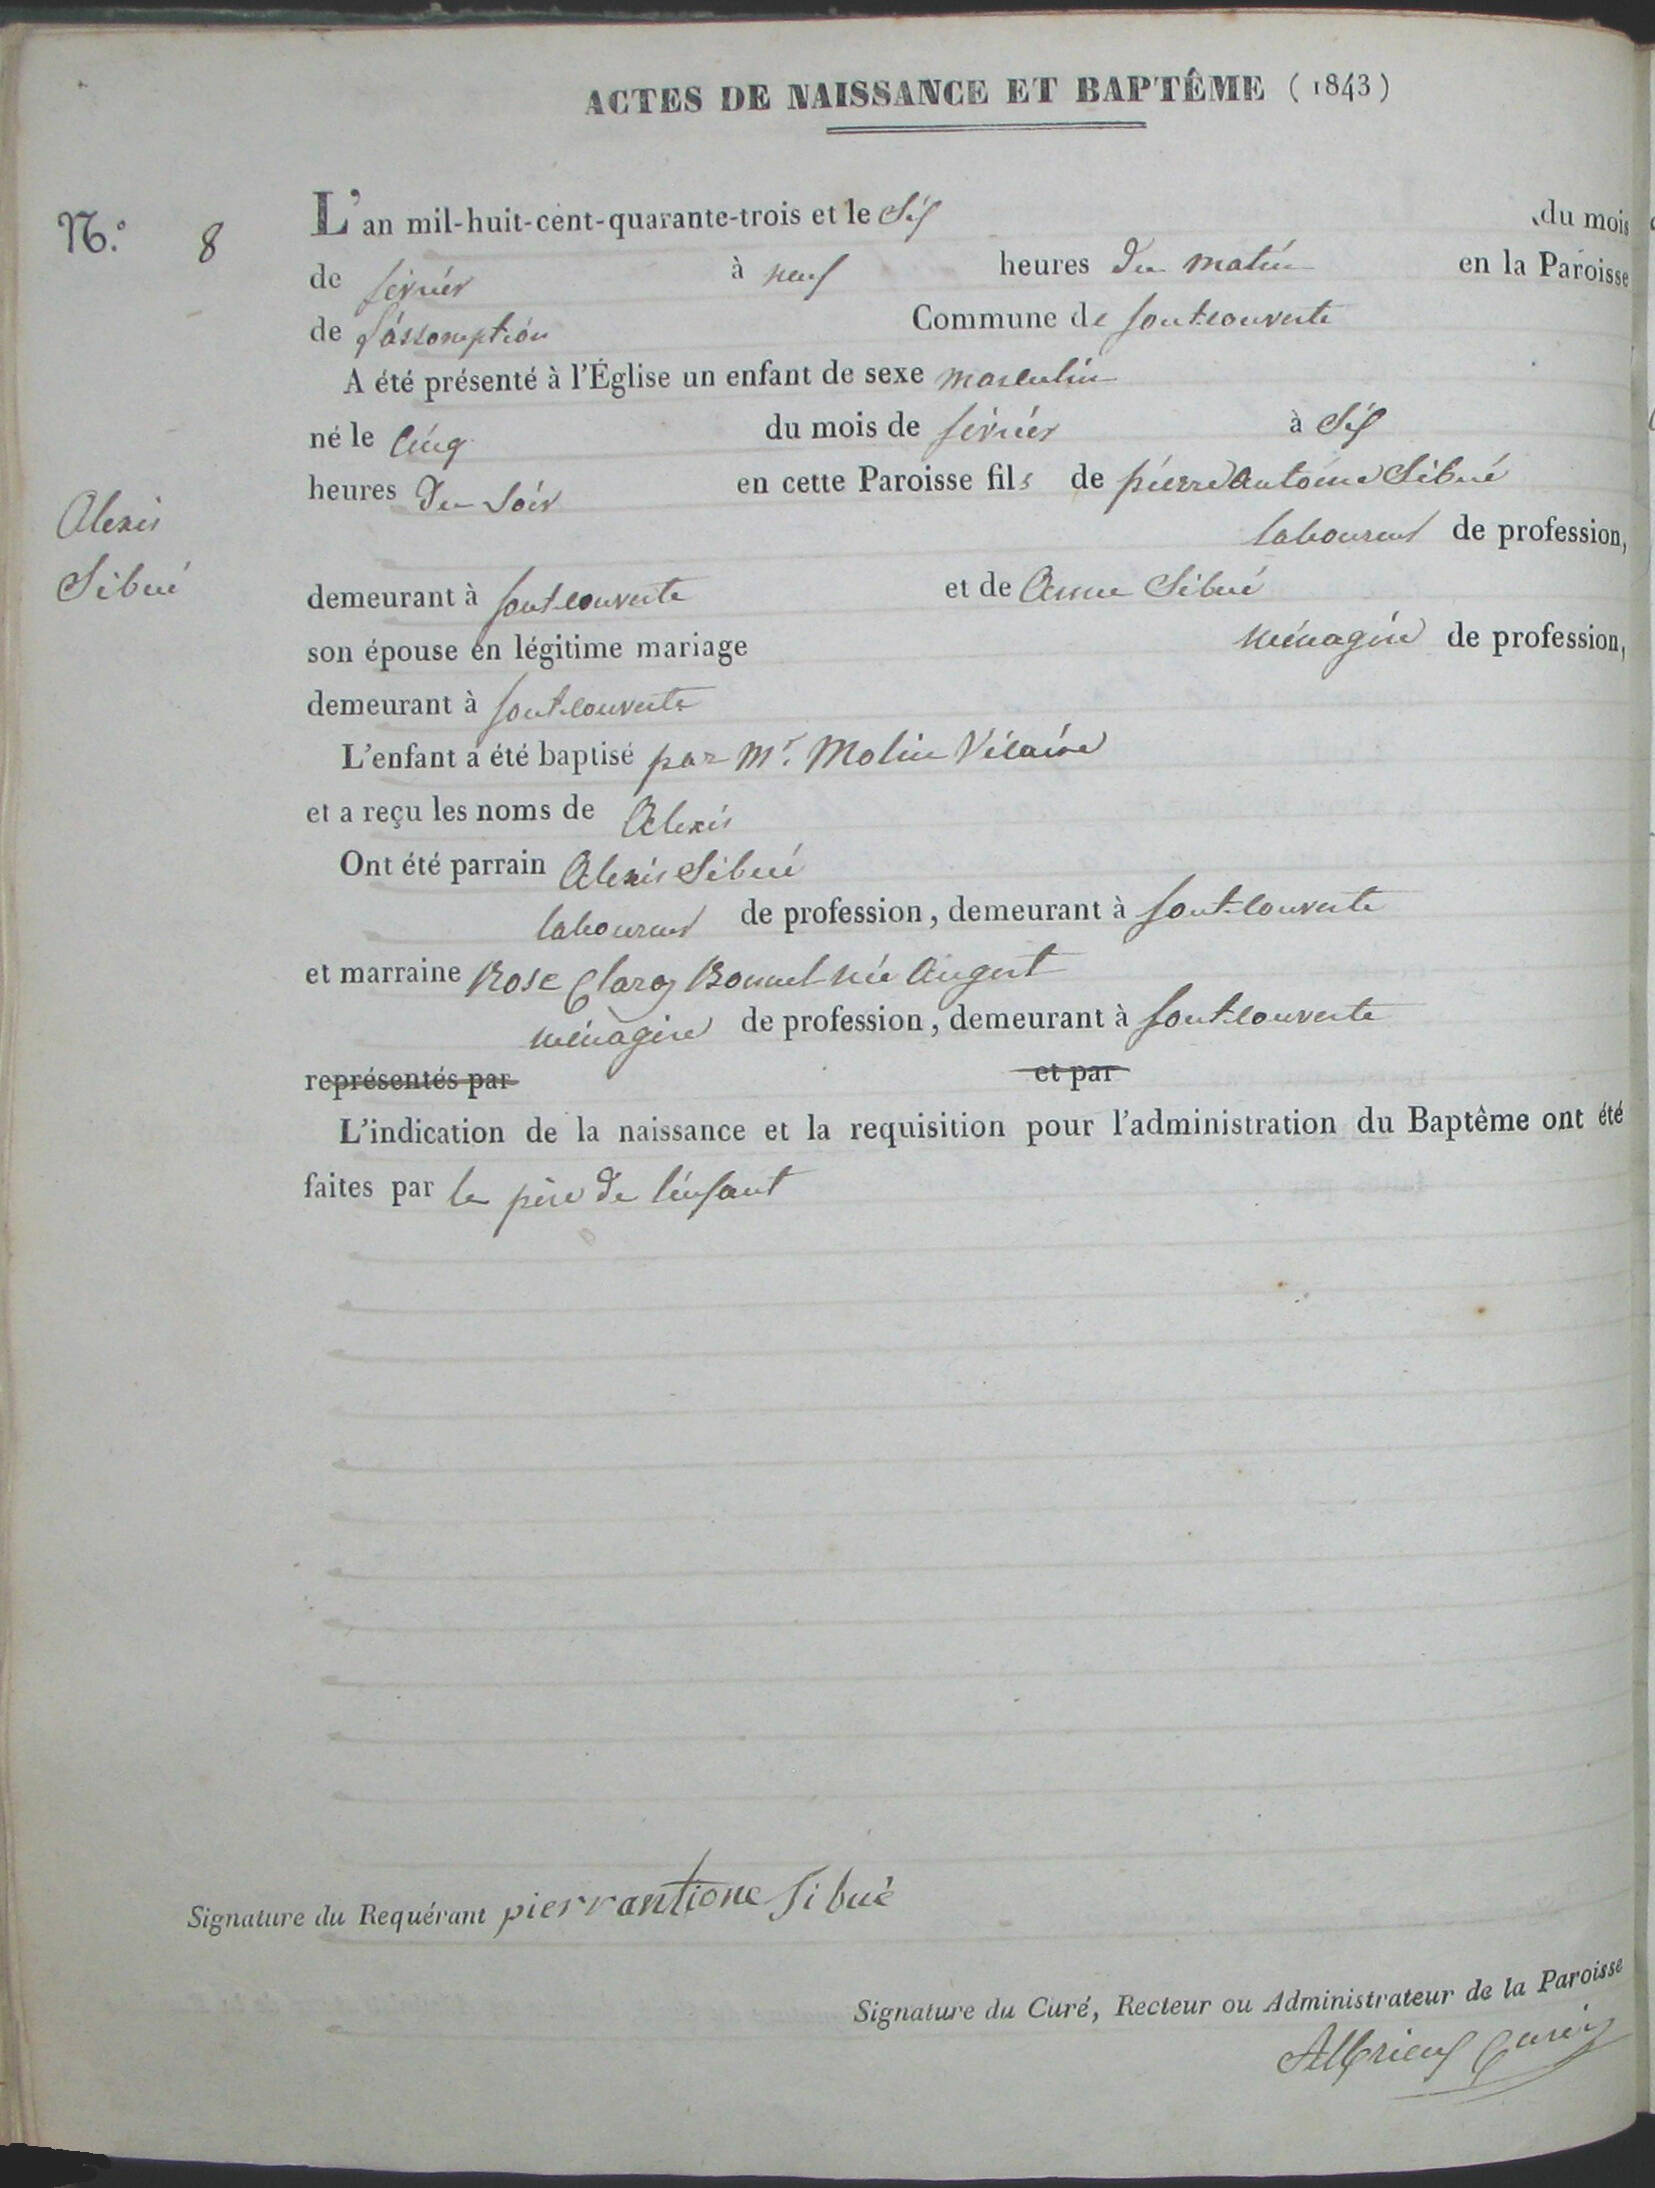 ACTES DE NAISSANCE ET BAPTÊME (1843)
N.º 8
L'an mil-huit-cent-quarante-trois et le Six du mois
de février à neuf heures du matin en la Paroisse
de l'assomption Commune de fontcouverte
A été présenté à l'Église un enfant de sexe masculin
né le Cinq du mois de février à Six
heures du Soir en cette Paroisse fils de pierre antoine Sibué
laboureur de profession,
Alexis
Sibué
demeurant à fontcouverte et de Anne Sibué
son épouse en légitime mariage ménagère de profession,
demeurant à fontcouverte
L'enfant a été baptisé par Mr. Molin Vicaire
et a reçu les noms de Alexis
Ont été parrain Alexis Sibué
laboureur de profession, demeurant à fontcouverte
et marraine Rose Claraz Bonnel née Augert
ménagère de profession, demeurant à fontcouverte
représentés par et par
L'indication de la naissance et la requisition pour l'administration du Baptême ont été
faites par le père de l'enfant
Signature du Requérant pierrantione Sibué
Signature du Curé, Recteur ou Administrateur de la Paroisse
Curé